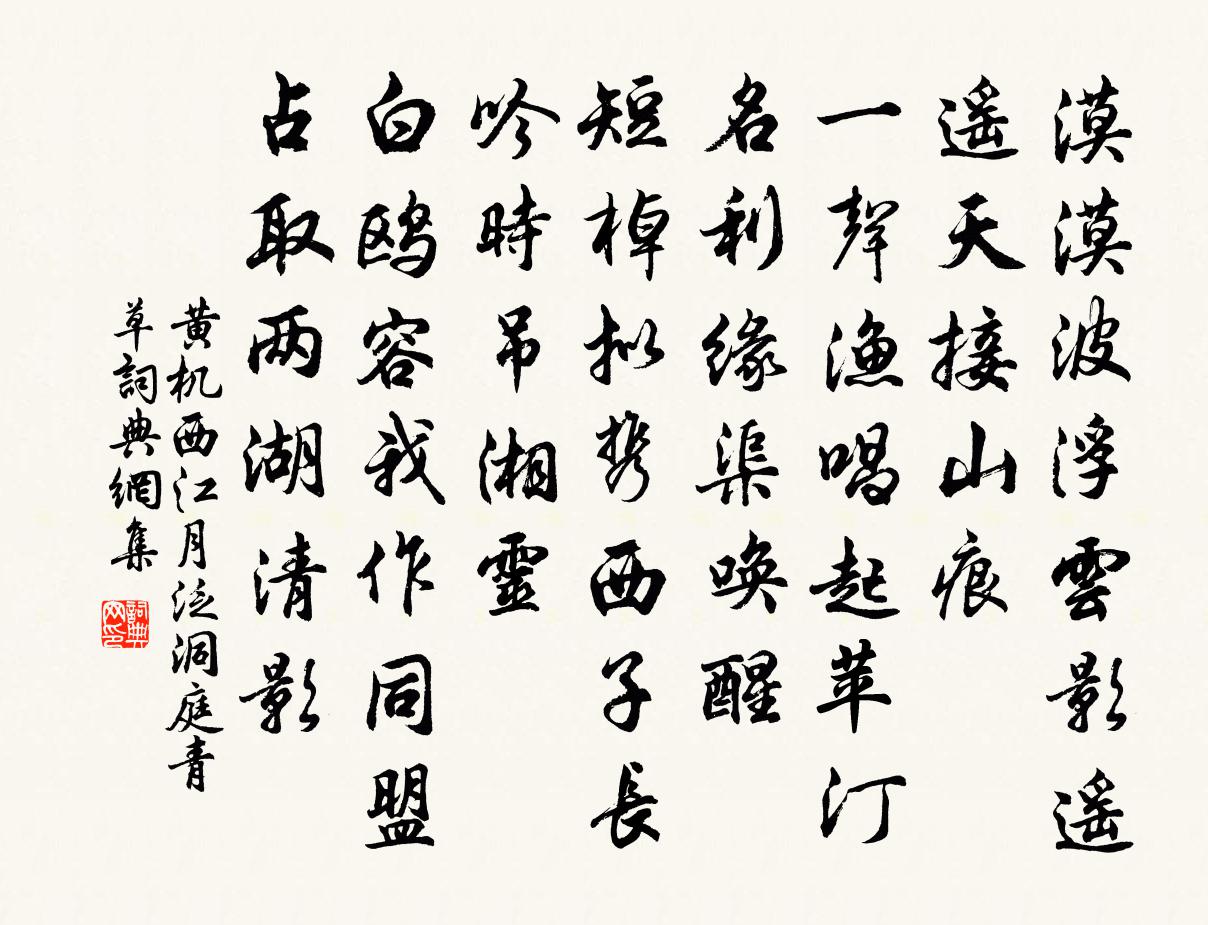 漠漠波浮雲影遥
遥天接山痕
一聲漁唱起苹汀
名利缘渠唤醒
短棹拟携西子長
吟時吊湘靈
白鸥容我作同盟
占取两湖清影
黄机西江月泛洞庭青
草詞典網集
詞典网印